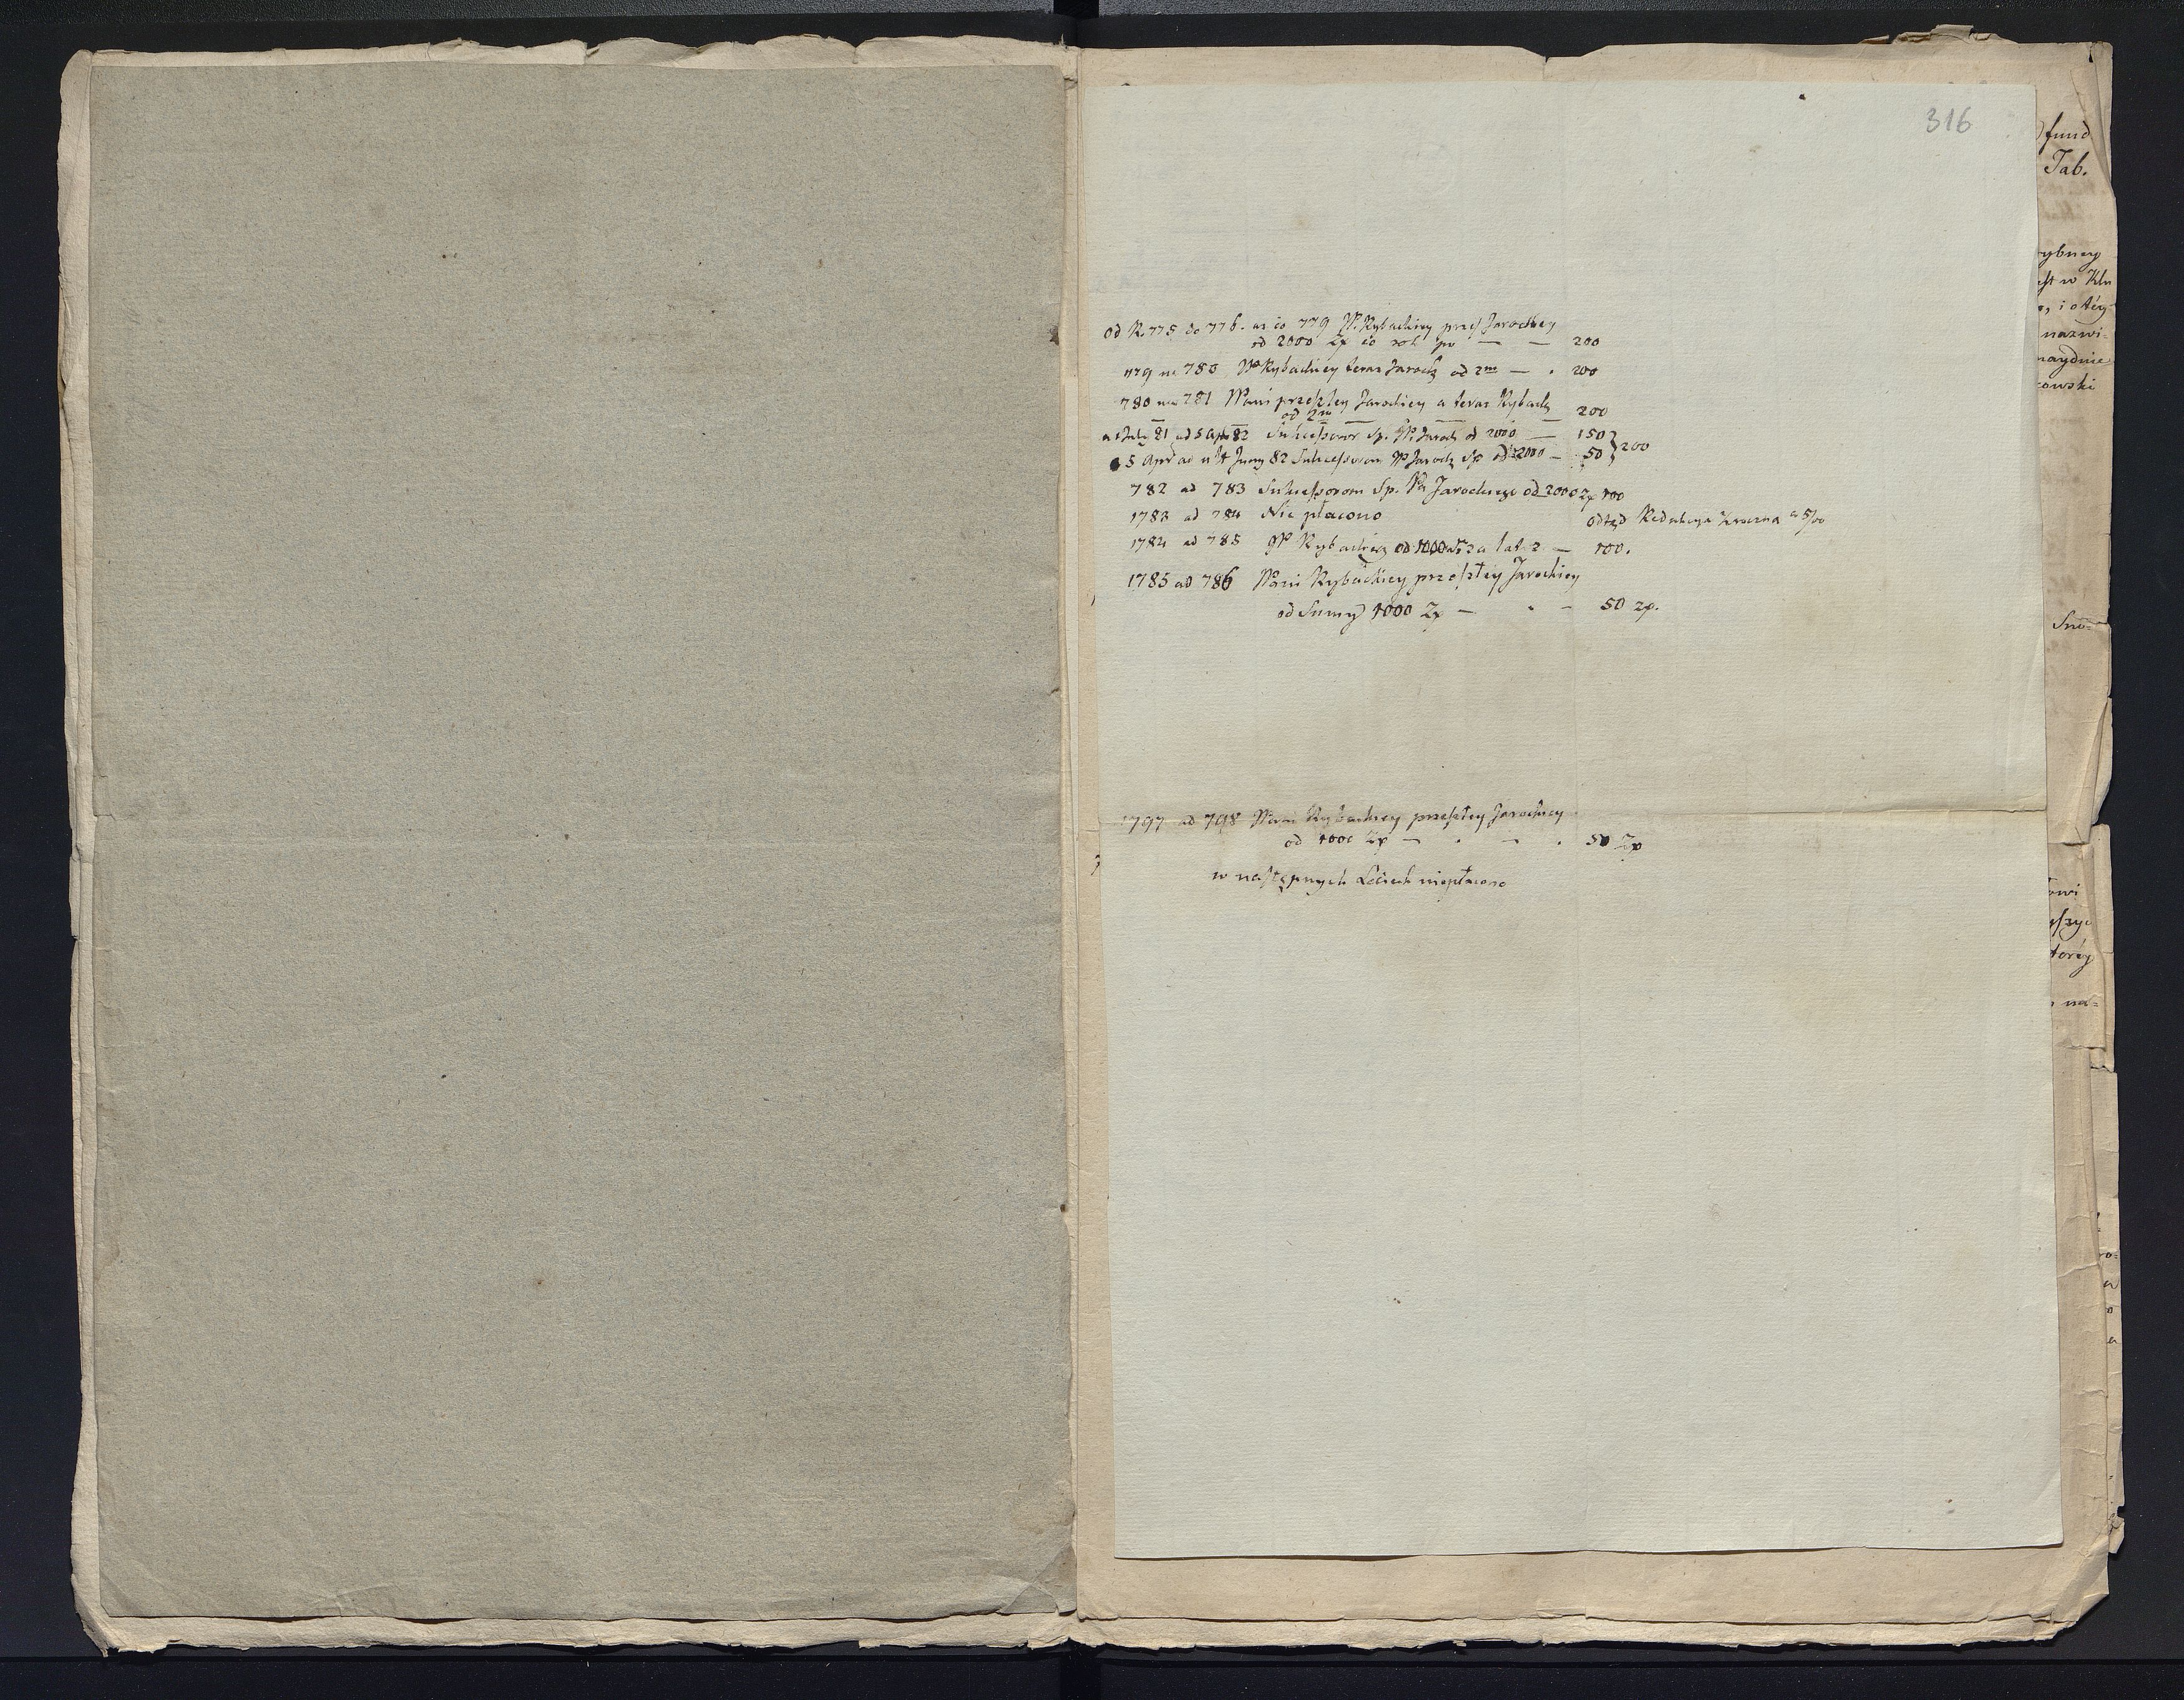 316
od R. 775 do 776. az do 779 JP. Rybackiey przesz Jarockiey
od 2000 Zp co rok po — — 200
779 na 780 WP Rybackiey teraz Jarock od 2m — . 200
780 na 781 Pani przeszłey Jarockiey a teraz Ryback
od 2m 200
a 1 July 81 ad 5 Apr 82 Sukcessorow Sp. JP. Jarock od 2000 — 150
a 5 Apr ad ult Juny 82 Sukcessorom JP Jarock Sp od 2000 — 50 } 200
782 ad 783 Sukcessorom Sp. Pa Jarockiego od 2000 Zp 100
1783 ad 784 Nic płacono
odtąd Redukcya a 5/00
1784 ad 785 JP Rybackiey od 1000 za lat 2 — 100.
1785 ad 786 Pani Rybackiey przeszłey Jarockiey
od Sumy 1000 Zp — . — 50 zp.
1797 ad 798 Pani Rybackiey przeszłey Jarockiey
od 1000 Zp — . — . 50 Zp
w następnych Leciech niepłacono
fund
Tab.
rybney
w Klu
i o téy
nazwi-
naydnie
owski
Sno-
owi
toréy
na-